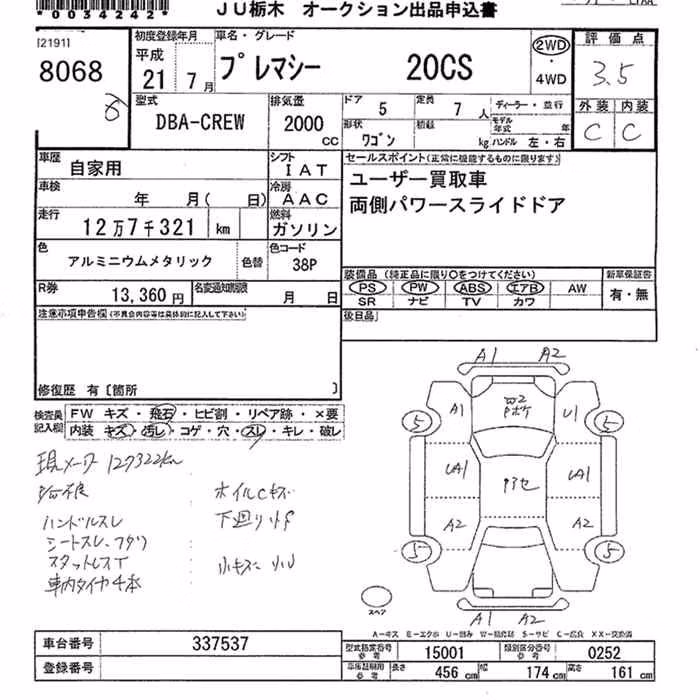 *0034242*
JU栃木 オークション出品申込書
[2191]
8068
初度登録年月
平成
21 7月
車名・グレード
プレマシー 20CS
2WD
・
4WD
評価点
3.5
外装 内装
C C
型式
DBA-CREW
排気量
2000 cc
ドア 5
定員 7 人
形状 ワゴン
積載 kg
ディーラー・並行
モデル年式 年
ハンドル 左・右
車歴 自家用
シフト IAT
車検 年 月( 日)
冷房 AAC
走行 12万7千321 km
燃料 ガソリン
色 アルミニウムメタリック
色替
色コード 38P
R券 13,360円
名変通知期限 月 日
セールスポイント(正常に機能するものに限ります)
ユーザー買取車
両側パワースライドドア
装備品(純正品に限り〇をつけてください)
新車保証書
PS PW ABS エアB AW
SR ナビ TV カワ
有・無
後日品
注意事項申告欄(不具合内容等は具体的に記入して下さい)
修復歴 有〔箇所 〕
検査員記入欄
FW キズ・飛石・ヒビ割・リペア跡・×要
内装 キズ・汚レ・コゲ・穴・スレ・キレ・破レ
現メーター 127322km
ホイルCキズ
ハンドルスレ
下廻りサ
シートスレ
スタットレス
小キズ 小U
車内タイヤ4本
A1 A2
A1 U1
5 5
UA1 A1
A2 A2
5 5
スペア
A1 A2
A-キズ E-エクボ U-凹み W-補修跡 S-サビ C-腐食 XX-交換済
車台番号 337537
登録番号
型式指定番号参考 15001
類別区分番号参考 0252
車検証明用参考 長さ 456cm 幅 174cm 高さ 161cm